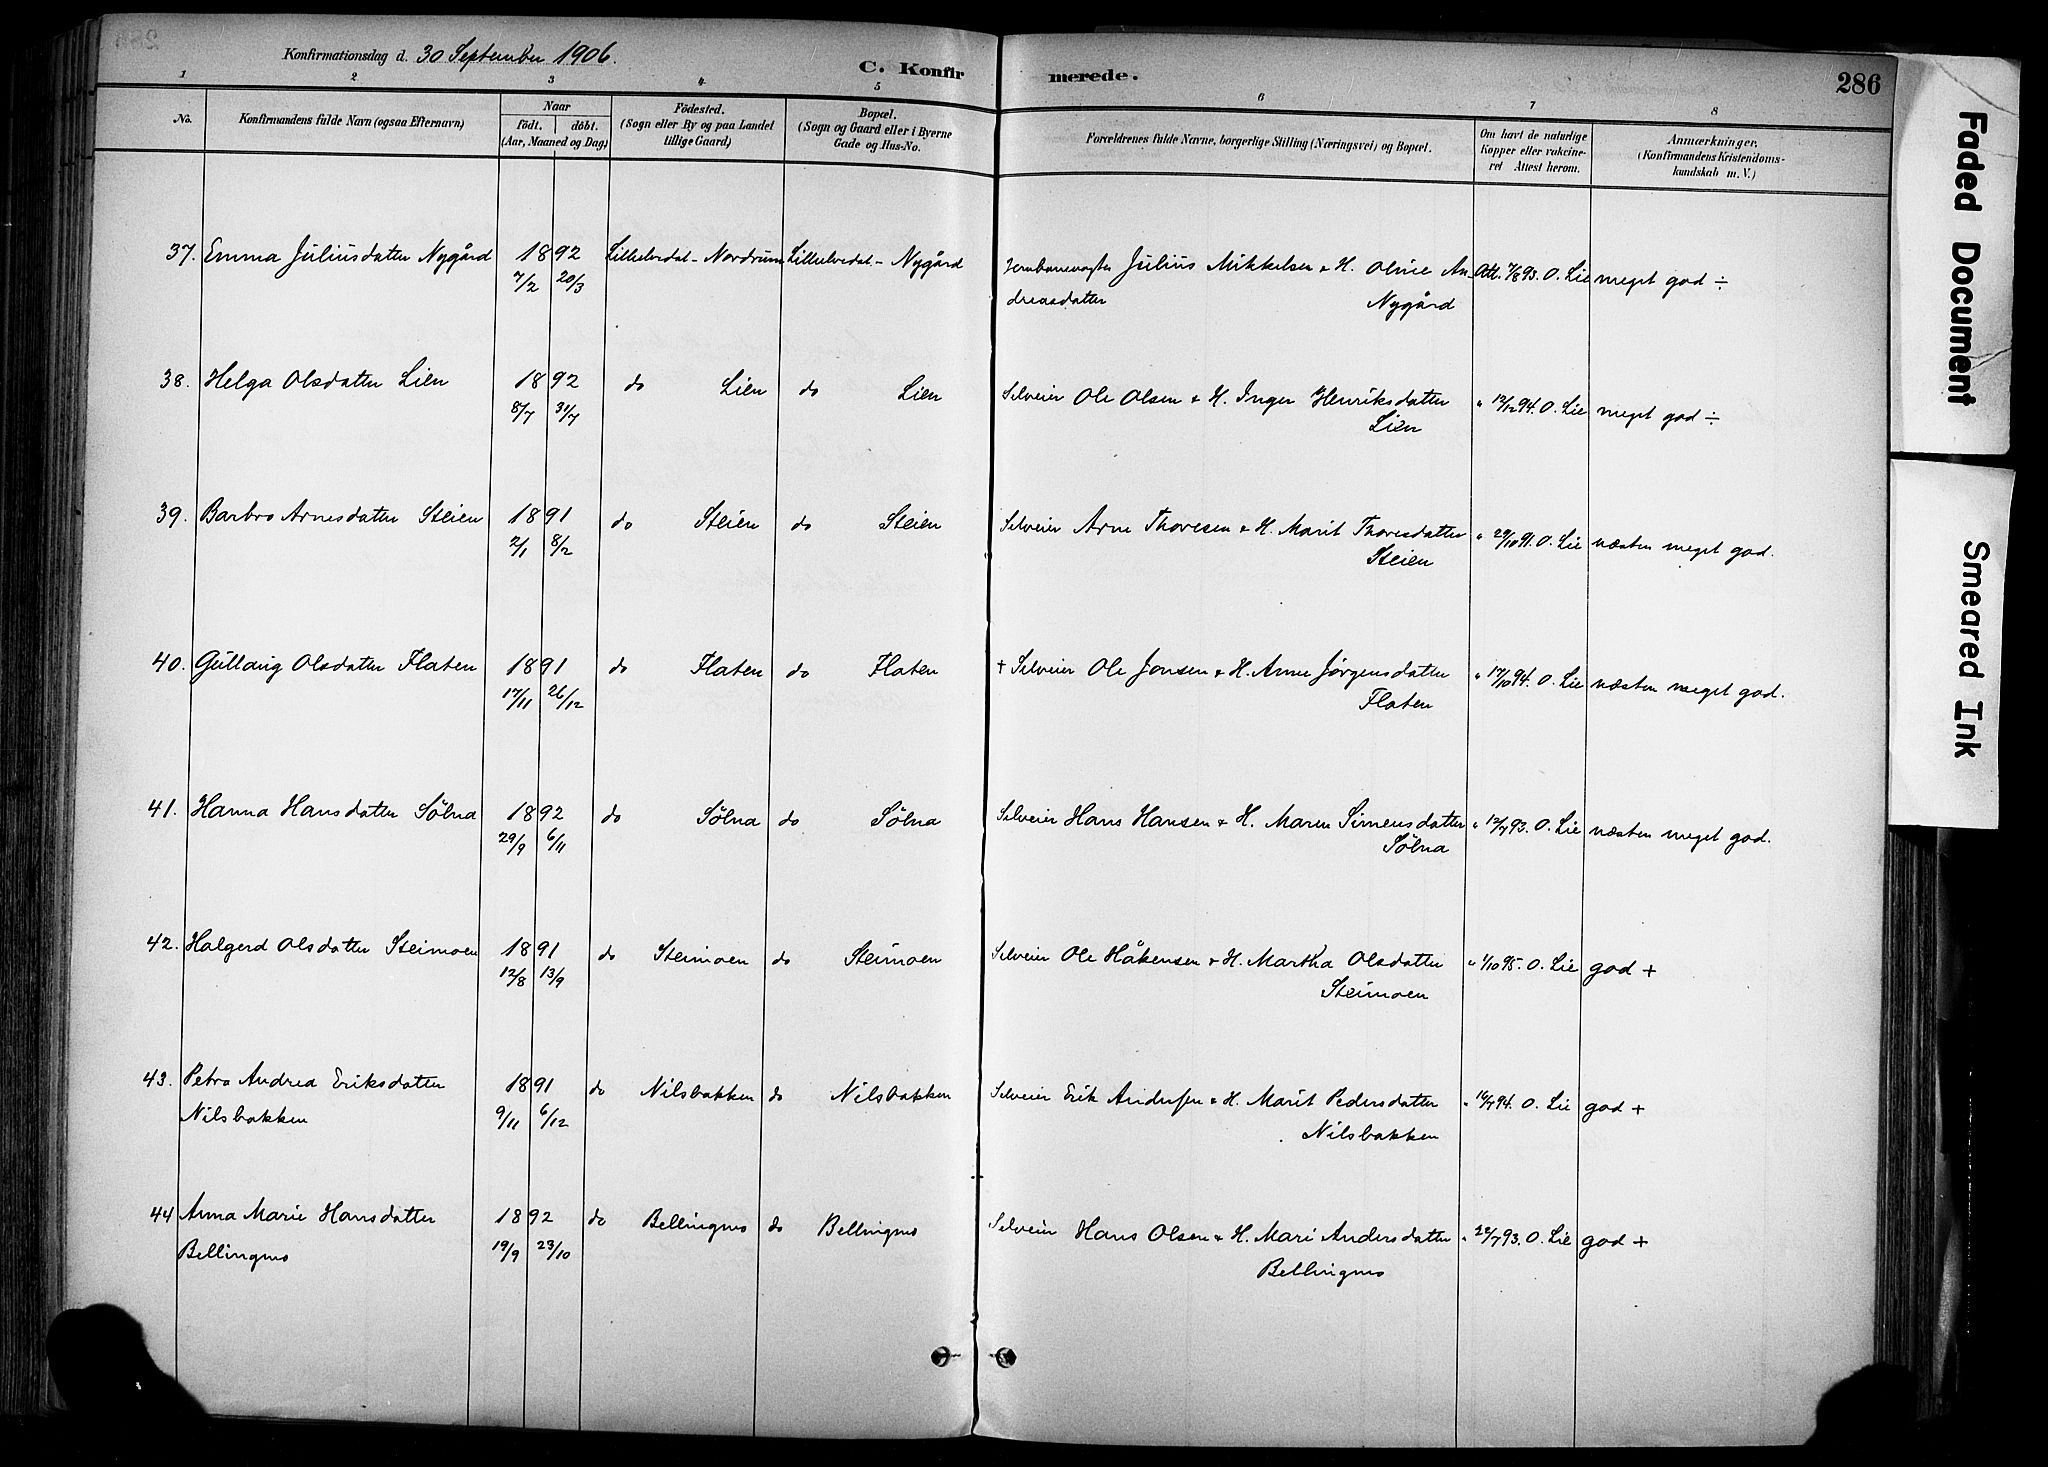 Konfirmationsdag d. 30 September 1906.
C. Konfir merede. 286
1 2 3 4 5 6 7 8
No.
Konfirmandens fulde Navn (ogsaa Efternavn)
Naar
födt. döbt.
(Aar, Maaned og Dag)
Födested.
(Sogn eller By og paa Landet
tillige Gaard)
Bopæl.
(Sogn og Gaard eller i Byerne
Gade og Hus-No.
Forældrenes fulde Navne, borgerlige Stilling (Næringsvei) og Bopæl.
Om havt de naturlige
Kopper eller vakcine-
ret Attest herom.
Anmærkninger.
(Konfirmandens Kristendoms-
kundskab m. V.)
37. Emma Juliusdatter Nygård 1892 Lilleelvedal - Nordrum Lilleelvedal - Nygård Jernbanevogter Julius Mikkelsen & H. Oline An- Att. 7/8 93. O. Lie meget god ÷
7/2 20/3 dreasdatter Nygård
38. Helga Olsdatter Lien 1892 do Lien do Lien Selveier Ole Olsen & H. Inger Henriksdatter " 12/12 94. O. Lie meget god ÷
8/7 31/7 Lien
39. Barbro Arnesdatter Steien 1891 do Steien do Steien Selveier Arne Thoresen & H. Marit Thoresdatter " 29/10 91. O. Lie næsten meget god.
2/1 8/2 Steien
40. Gullaug Olsdatter Flaten 1891 do Flaten do Flaten + Selveier Ole Jonsen & H. Anne Jørgensdatter " 17/10 94. O. Lie næsten meget god.
17/11 26/12 Flaten
41. Hanna Hansdatter Sölna 1892 do Sölna do Sölna Selveier Hans Hansen & H. Maren Simensdatter " 12/7 93. O. Lie næsten meget god.
29/9 6/11 Sölna
42. Halgerd Olsdatter Steimoen 1891 do Steimoen do Steimoen Selveier Ole Håkensen & H. Martha Olsdatter " 1/10 95. O. Lie god +
12/8 13/9 Steimoen
43. Petra Andrea Eriksdatter 1891 do Nilsbakken do Nilsbakken Selveier Erik Andersen & H. Marit Pedersdatter " 16/7 94. O. Lie god +
Nilsbakken 9/11 6/12 Nilsbakken
44 Anna Marie Hansdatter 1892 do Bellingmo do Bellingmo Selveier Hans Olsen & H. Mari Andersdatter " 22/7 93. O. Lie god +
Bellingmo 19/9 23/10 Bellingmo
Faded Document
Smeared Ink